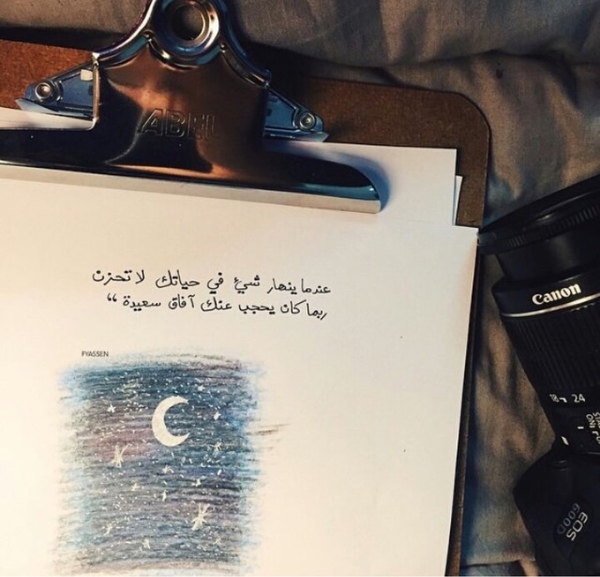 ABEL
عندما ينهار شيئ في حياتك لا تحزن
ربما كان يحجب عنك آفاق سعيدة “
FYASSEN
Canon
18 24
EOS
600D